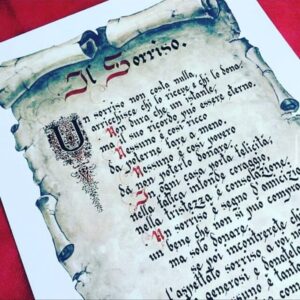 Il Sorriso.
Un sorriso non costa nulla,
arricchisce chi lo riceve e chi lo dona,
Non dura che un istante,
ma il suo ricordo può essere eterno.
Nessuno è così ricco
da poterne fare a meno
Nessuno è così povero
da non poterlo donare,
In ogni casa porta felicità,
nella fatica infonde coraggio,
nella tristezza è consolazione,
Un sorriso è segno d'amicizia
un bene che non si può comprare
ma solo donare.
poi incontrerete chi
l'aspettato sorriso a voi
generosi e donatelo
uno è tanto